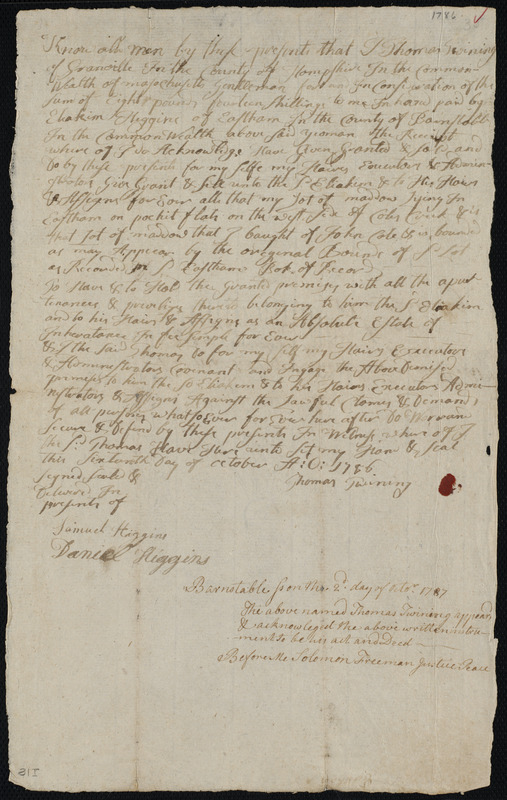 1786
Know all men by these presents that I Thomas Twining
of Granville In the County of Hampshire In the Common-
Wealth of masachusetts Gentleman for & In Consideration of the
Sum of Eight pounds fourteen Shillings to me In hand paid by
Eliakim Higgins of Eastham In the County of Barnstable
In the CommonWealth above said yeoman the Receipt
where of I do Acknowledge Have Given Granted & sold and
do by these presents for my selfe my Haires Executors & Admin-
istrators Give Grant & Sell unto the Sd Eliakim & to His Haires
& Assigns for Ever all that my Lot of maddow Lying In
Eastham on pochit flats on the west Side of Coles Crick & is
that Lot of maddow that I baught of John Cole & is bounded
as may Appear by the original Bounds of Sd Lot
as Recorded In Sd Eastham Book of Record
To Have & to Hold the Granted premises with all the apur-
tenances & priviledges thereto belonging to him the Sd Eliakim
and to his Haires & Assigns as an Absolute Estate of
Inheratance In fee simple for Ever
& I the said Thomas do for my self my Haires Executors
& Adminnestrators Covenant and Ingage the Above Demised
premises to him the Sd Eliakim & to his Haires Executors Admi-
nestrators & Assigns Against the Lawful Clames & Demands
of all persons whatsoever for Ever here after to Warrant
Secure & Defend by these presents In Witness where of I
the Sd Thomas Have Here unto set my Hand & Seal
this Sixteenth Day of october A:D: 1786
Signed Sealed &
Delivered In
presents of
Thomas Twining
Samuel Higgins
Daniel Higgins
Barnstable ss on the 2d day of 1787
The above named Thomas Twining appeared
& acknowleged the above written instru-
ment to be his act and deed
Before Me Solomon Freeman Justice Peace